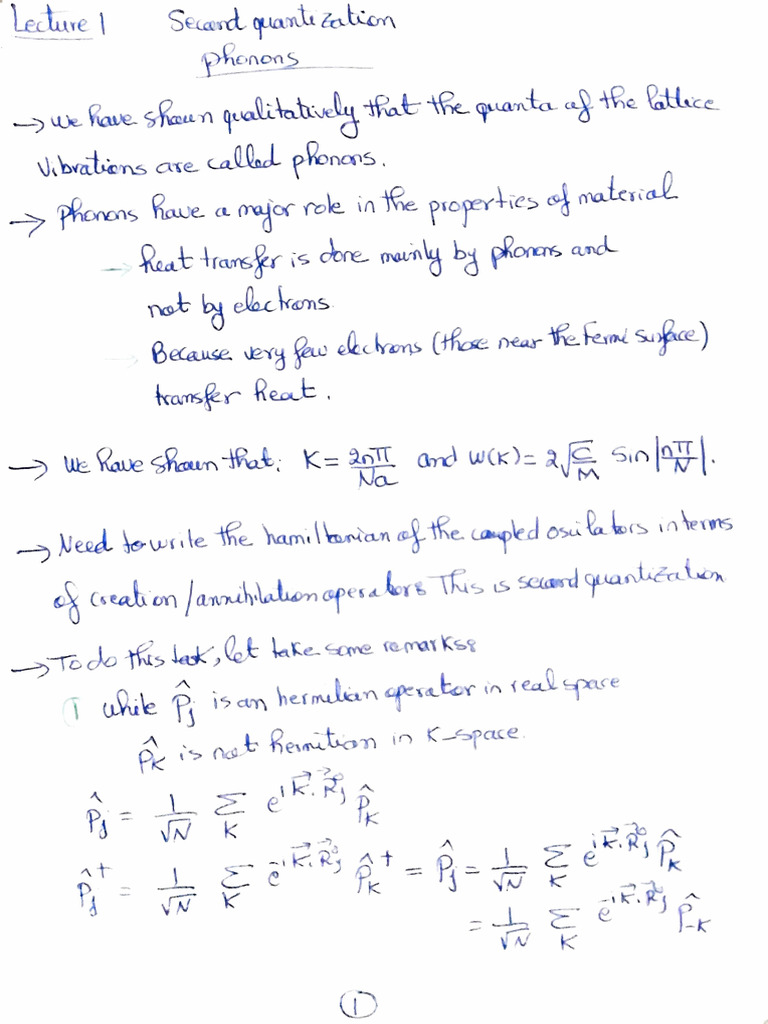 Lecture 1 Second quantization
phonons
→ We have shown qualitatively that the quanta of the lattice
vibrations are called phonons.
→ Phonons have a major role in the properties of material
→ heat transfer is done mainly by phonons and
not by electrons.
→ Because very few electrons (those near the Fermi surface)
transfer heat.
→ We have shown that: K = 2nπ/Na and ω(k) = 2√(C/M) Sin|nπ/N|.
→ Need to write the hamiltonian of the coupled oscilators in terms
of creation/annihilation operators. This is second quantization
→ To do this task, let take some remarks:
1 while P̂j is an hermetian operator in real space
P̂K is not hermition in K-space.
P̂j = 1/√N Σ_K e^{iK⃗.R⃗°j} P̂K
P̂j† = 1/√N Σ_K e^{-iK⃗.R⃗°j} P̂K† = P̂j = 1/√N Σ_K e^{iK⃗.R⃗°j} P̂K
= 1/√N Σ_K e^{-iK⃗.R⃗°j} P̂-K
1